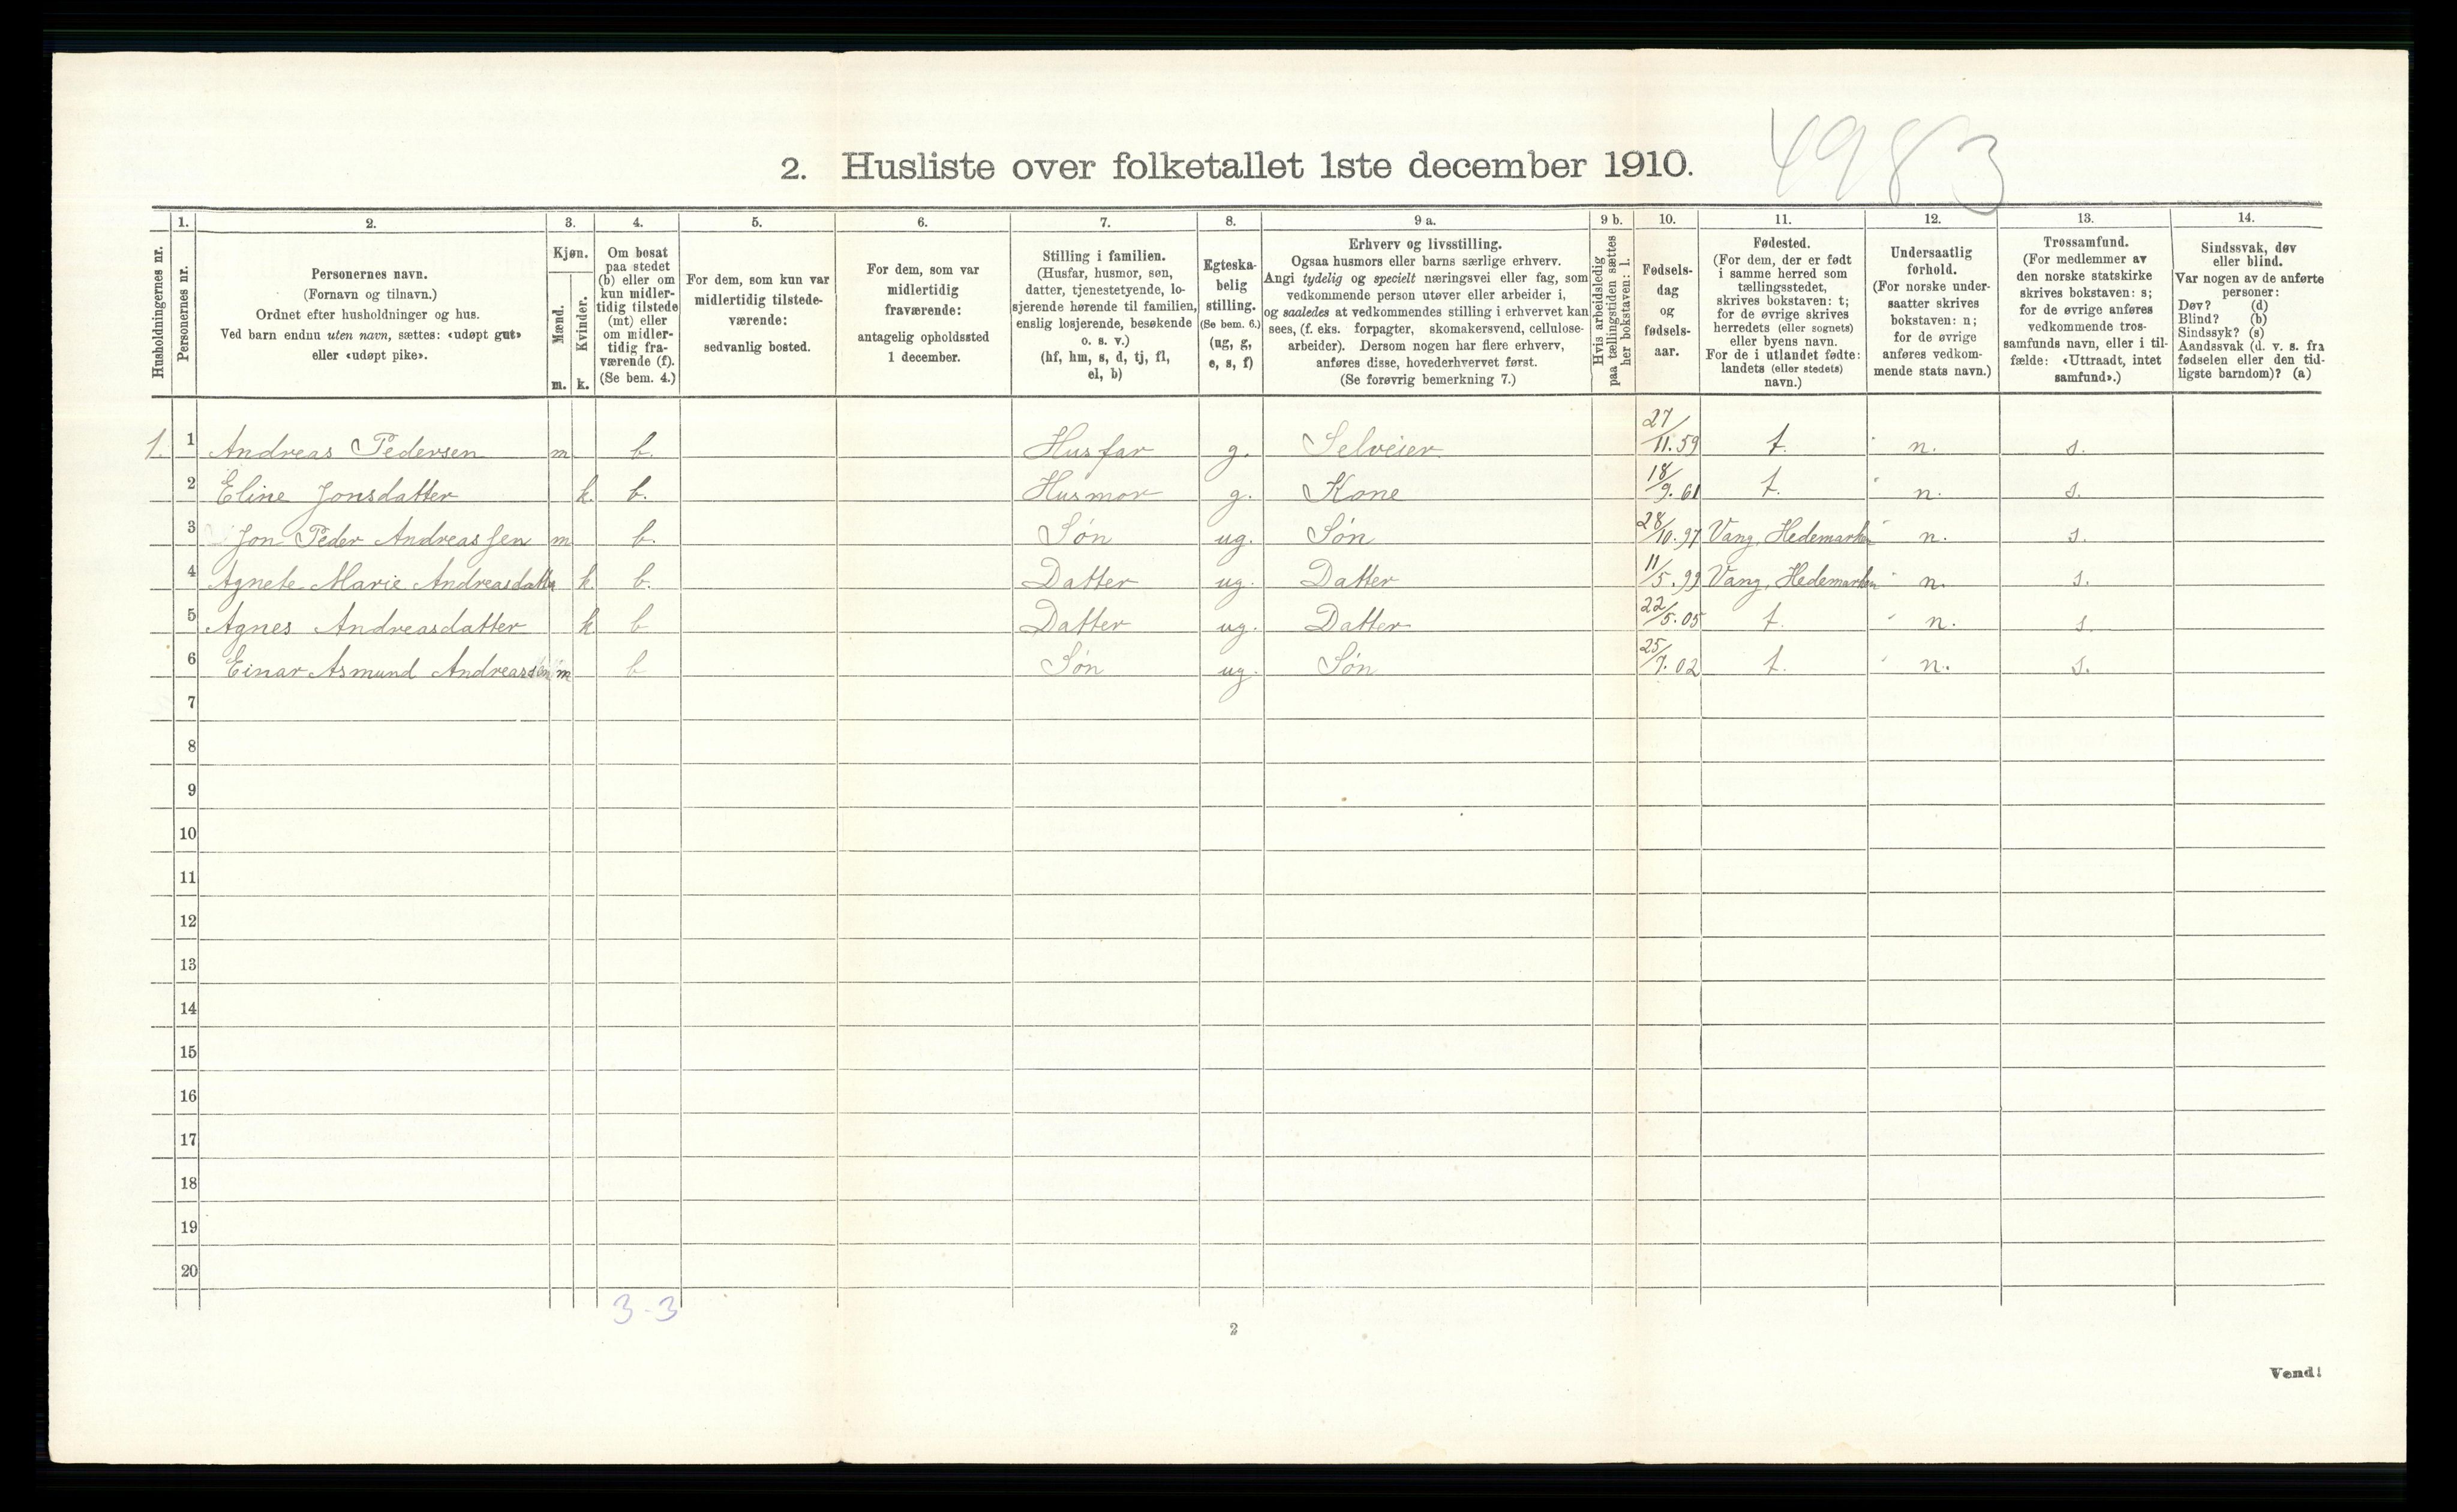 4983
2. Husliste over folketallet 1ste december 1910.
Husholdningernes nr.
1.
Personernes nr.
2.
Personernes navn.
(Fornavn og tilnavn.)
Ordnet efter husholdninger og hus.
Ved barn endnu uten navn, sættes: «udøpt gut»
eller «udøpt pike».
3.
Kjøn.
Mænd.
Kvinder.
m. k.
4.
Om bosat
paa stedet
(b) eller om
kun midler-
tidig tilstede
(mt) eller
om midler-
tidig fra-
værende (f).
(Se bem. 4.)
5.
For dem, som kun var
midlertidig tilstede-
værende:
sedvanlig bosted.
6.
For dem, som var
midlertidig
fraværende:
antagelig opholdssted
1 december.
7.
Stilling i familien.
(Husfar, husmor, søn,
datter, tjenestetyende, lo-
sjerende hørende til familien,
enslig losjerende, besøkende
o. s. v.)
(hf, hm, s, d, tj, fl,
el, b)
8.
Egteska-
belig
stilling.
(Se bem. 6.)
(ug, g,
e, s, f)
9 a.
Erhverv og livsstilling.
Ogsaa husmors eller barns særlige erhverv.
Angi tydelig og specielt næringsvei eller fag, som
vedkommende person utøver eller arbeider i,
og saaledes at vedkommendes stilling i erhvervet kan
sees, (f. eks. forpagter, skomakersvend, cellulose-
arbeider). Dersom nogen har flere erhverv,
anføres disse, hovederhvervet først.
(Se forøvrig bemerkning 7.)
9 b.
Hvis arbeidsledig
paa tællingstiden sættes
her bokstaven: l.
10.
Fødsels-
dag
og
fødsels-
aar.
11.
Fødested.
(For dem, der er født
i samme herred som
tællingsstedet,
skrives bokstaven: t;
for de øvrige skrives
herredets (eller sognets)
eller byens navn.
For de i utlandet fødte:
landets (eller stedets)
navn.)
12.
Undersaatlig
forhold.
(For norske under-
saatter skrives
bokstaven: n;
for de øvrige
anføres vedkom-
mende stats navn.)
13.
Trossamfund.
(For medlemmer av
den norske statskirke
skrives bokstaven: s;
for de øvrige anføres
vedkommende tros-
samfunds navn, eller i til-
fælde: «Uttraadt, intet
samfund».)
14.
Sindssvak, døv
eller blind.
Var nogen av de anførte
personer:
Døv? (d)
Blind? (b)
Sindssyk? (s)
Aandssvak (d. v. s. fra
fødselen eller den tid-
ligste barndom)? (a)
1. 1 Andreas Pedersen m b. Husfar g. Selveier 27/11.59 t. n. s.
2 Eline Jonsdatter k. b. Husmor g. Kone 18/9.61 t. n. s.
3 Jon Peder Andreassen m b. Søn ug. Søn 28/10.97 Vang, Hedemarken n. s.
4 Agnete Marie Andreasdatter k. b. Datter ug. Datter 11/5.99 Vang, Hedemarken n. s.
5 Agnes Andreasdatter k b Datter ug. Datter 22/5.05 t. n. s.
6 Einar Asmund Andreassen m b Søn ug. Søn 25/7.02 t. n. s.
7
8
9
10
11
12
13
14
15
16
17
18
19
20
3-3
2
Vend!